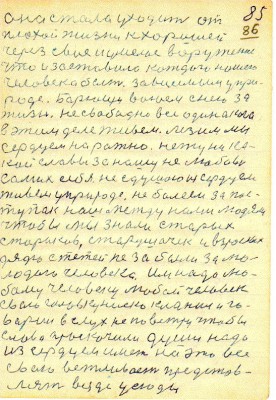 85
86
она стала уходит от
плохой жизни к хорошей
через свое имение вооружение
что и заставило каждого нашего
человека быт зависимым у при-
роде. Боримся воюем с нею за
жизн. не свободно все одинаково
в этим деле живем.
сердуем на ратно. не нужна ни ка-
кой славы за нашу не любовь
самих себя. не с душою и сердцем
живем у природе. не болеем за пос-
тупак наш между нами людям
чтобы мы знали старых
стариков, старушачек и взрослых
дядю с тетей не забыли за мо-
лодого человека. Им надо лю-
бому человеку любой человек
свою голову низко клания и го-
варит в слух не поветри чтобы
слова проскочили души надо
из сердцем имет на это все
свою вежливаст представ-
лят везде усюды